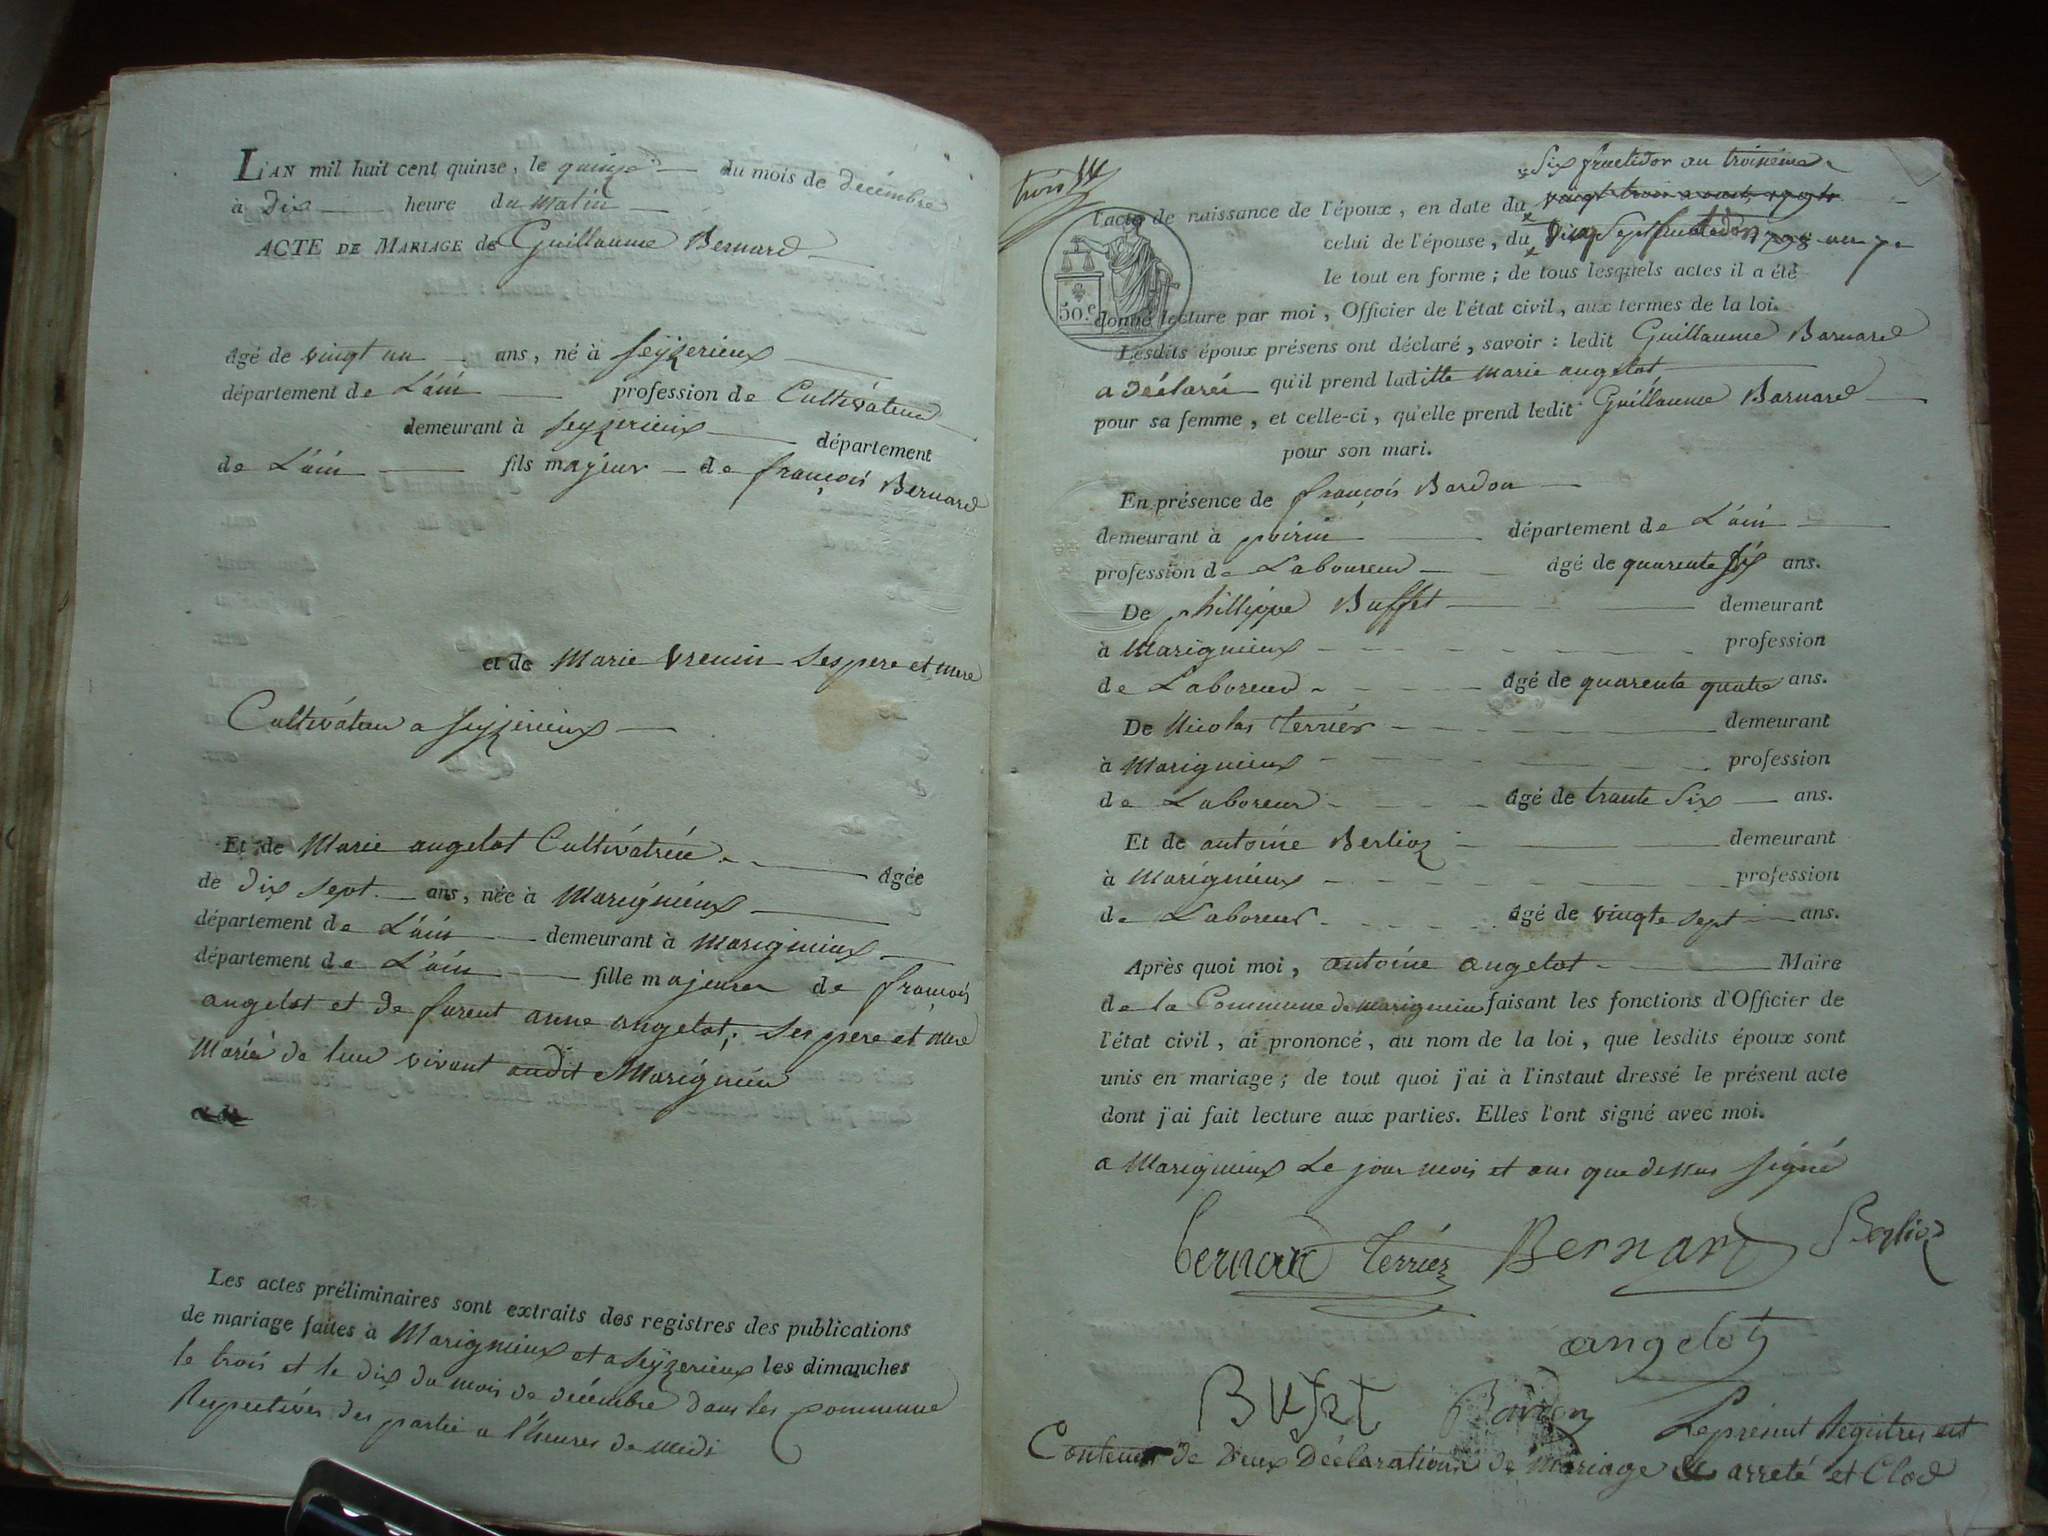 L'AN mil huit cent quinze, le quinze du mois de décembre
à dix heure du matin
ACTE DE MARIAGE de Guillaume Bernard
âgé de vingt un ans, né à Seyzerieux
département de L'ain profession de Cultivateur
demeurant à Seyzerieux département
de L'ain fils majeur de françois Bernard
et de Marie ses pere et mere
Cultivateur a Seyzerieux
Et de Marie angelot Cultivatrice âgée
de dix sept ans, née à Marignieux
département de L'ain demeurant à Marignieux
département de L'ain fille majeure de françois
angelot et de anne angelot, ses pere et mere
Marié de leur vivant audit Marignieu
Les actes préliminaires sont extraits des registres des publications
de mariage faites à Marignieux et a Seyzerieux les dimanches
le trois et le dix du mois de décembre dans les commune
Respectives des partie a l'heures de midi
trois
six fructidor an troisième
l'acte de naissance de l'époux, en date du
celui de l'épouse, du
le tout en forme; de tous lesquels actes il a été
50.c
donné lecture par moi, Officier de l'état civil, aux termes de la loi.
Lesdits époux présens ont déclaré, savoir : ledit Guillaume Barnard
a déclarér qu'il prend laditte Marie angelot
pour sa femme, et celle-ci, qu'elle prend ledit Guillaume Barnard
pour son mari.
En présence de françois Bardon
demeurant à poirin département de L'ain
profession de Laboureur âgé de quarente six ans.
De phillippe Buffet demeurant
à Marignieux profession
de Laboreur âgé de quarente quatre ans.
De Nicolas terrier demeurant
à Marignieux profession
de Laboreur âgé de trante six ans.
Et de antoine Berlioz demeurant
à Marignieux profession
de Laboreur âgé de vingte sept ans.
Après quoi moi, antoine angelot Maire
de la Commune de marignieu faisant les fonctions d'Officier de
l'état civil, ai prononcé, au nom de la loi, que lesdits époux sont
unis en mariage; de tout quoi j'ai à l'instaut dressé le présent acte
dont j'ai fait lecture aux parties. Elles l'ont signé avec moi.
a Marignieux Le jour mois et ans que dessus signé
bernard terrier Bernard Berlioz
angelot
Bufet Bardon Le present Registres est
Contenur de Deux Déclarations de Mariage arreté et Clod